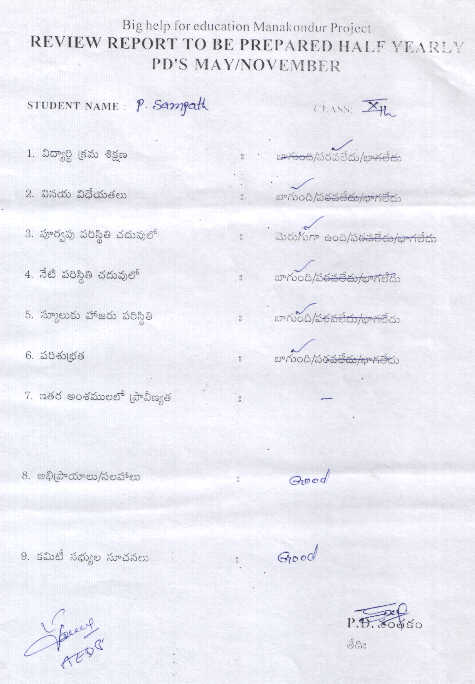 Big help for education Manakondur Project
REVIEW REPORT TO BE PREPARED HALF YEARLY
PD'S MAY/NOVEMBER
STUDENT NAME : P. Sampath CLASS: Xth
1. విద్యార్థి క్రమ శిక్షణ : బాగుంది/పరవలేదు/బాగలేదు
2. వినయ విధేయతలు : బాగుంది/పరవలేదు/బాగలేదు
3. పూర్వపు పరిస్థితి చదువులో : మెరుగుగా ఉంది/పరవలేదు/బాగలేదు
4. నేటి పరిస్థితి చదువులో : బాగుంది/పరవలేదు/బాగలేదు
5. స్కూలుకు హాజరు పరిస్థితి : బాగుంది/పరవలేదు/బాగలేదు
6. పరిశుభ్రత : బాగుంది/పరవలేదు/బాగలేదు
7. ఇతర అంశములలో ప్రావీణ్యత : –
8. అభిప్రాయాలు/సలహాలు : Good
9. కమిటీ సభ్యుల సూచనలు : Good
P.D. సంతకం
తేదీ: